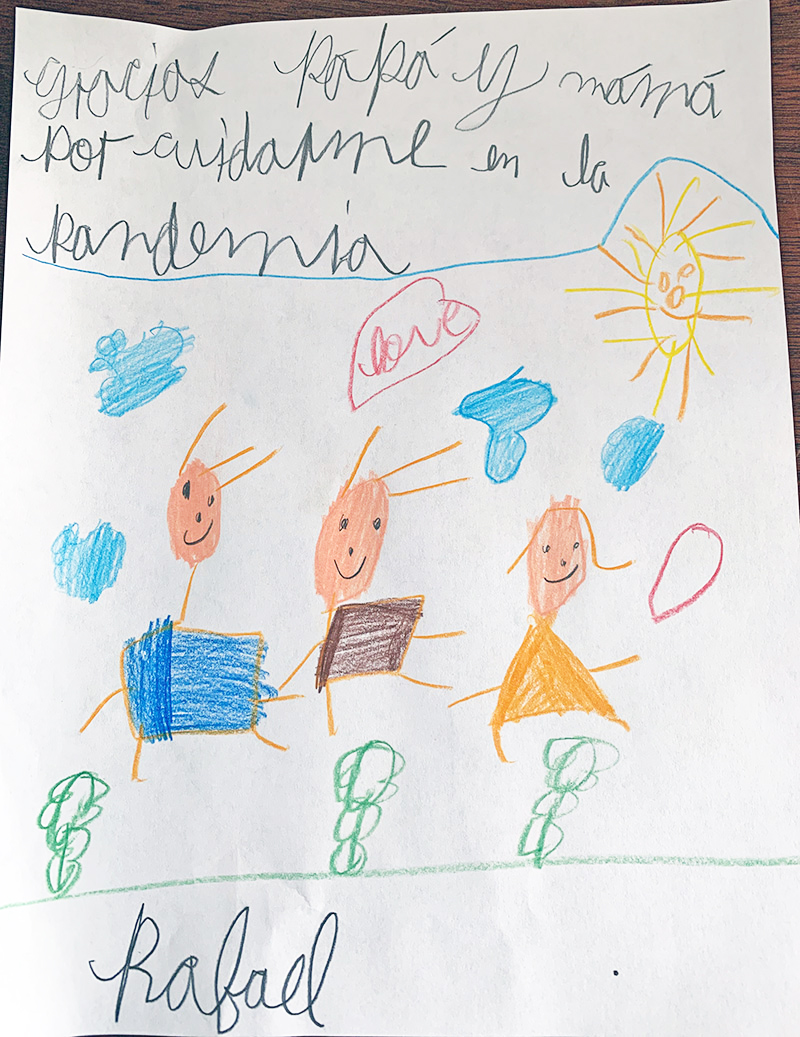 gracias papá y mámá
por cuidarme en la
pandemia
love
Rafael